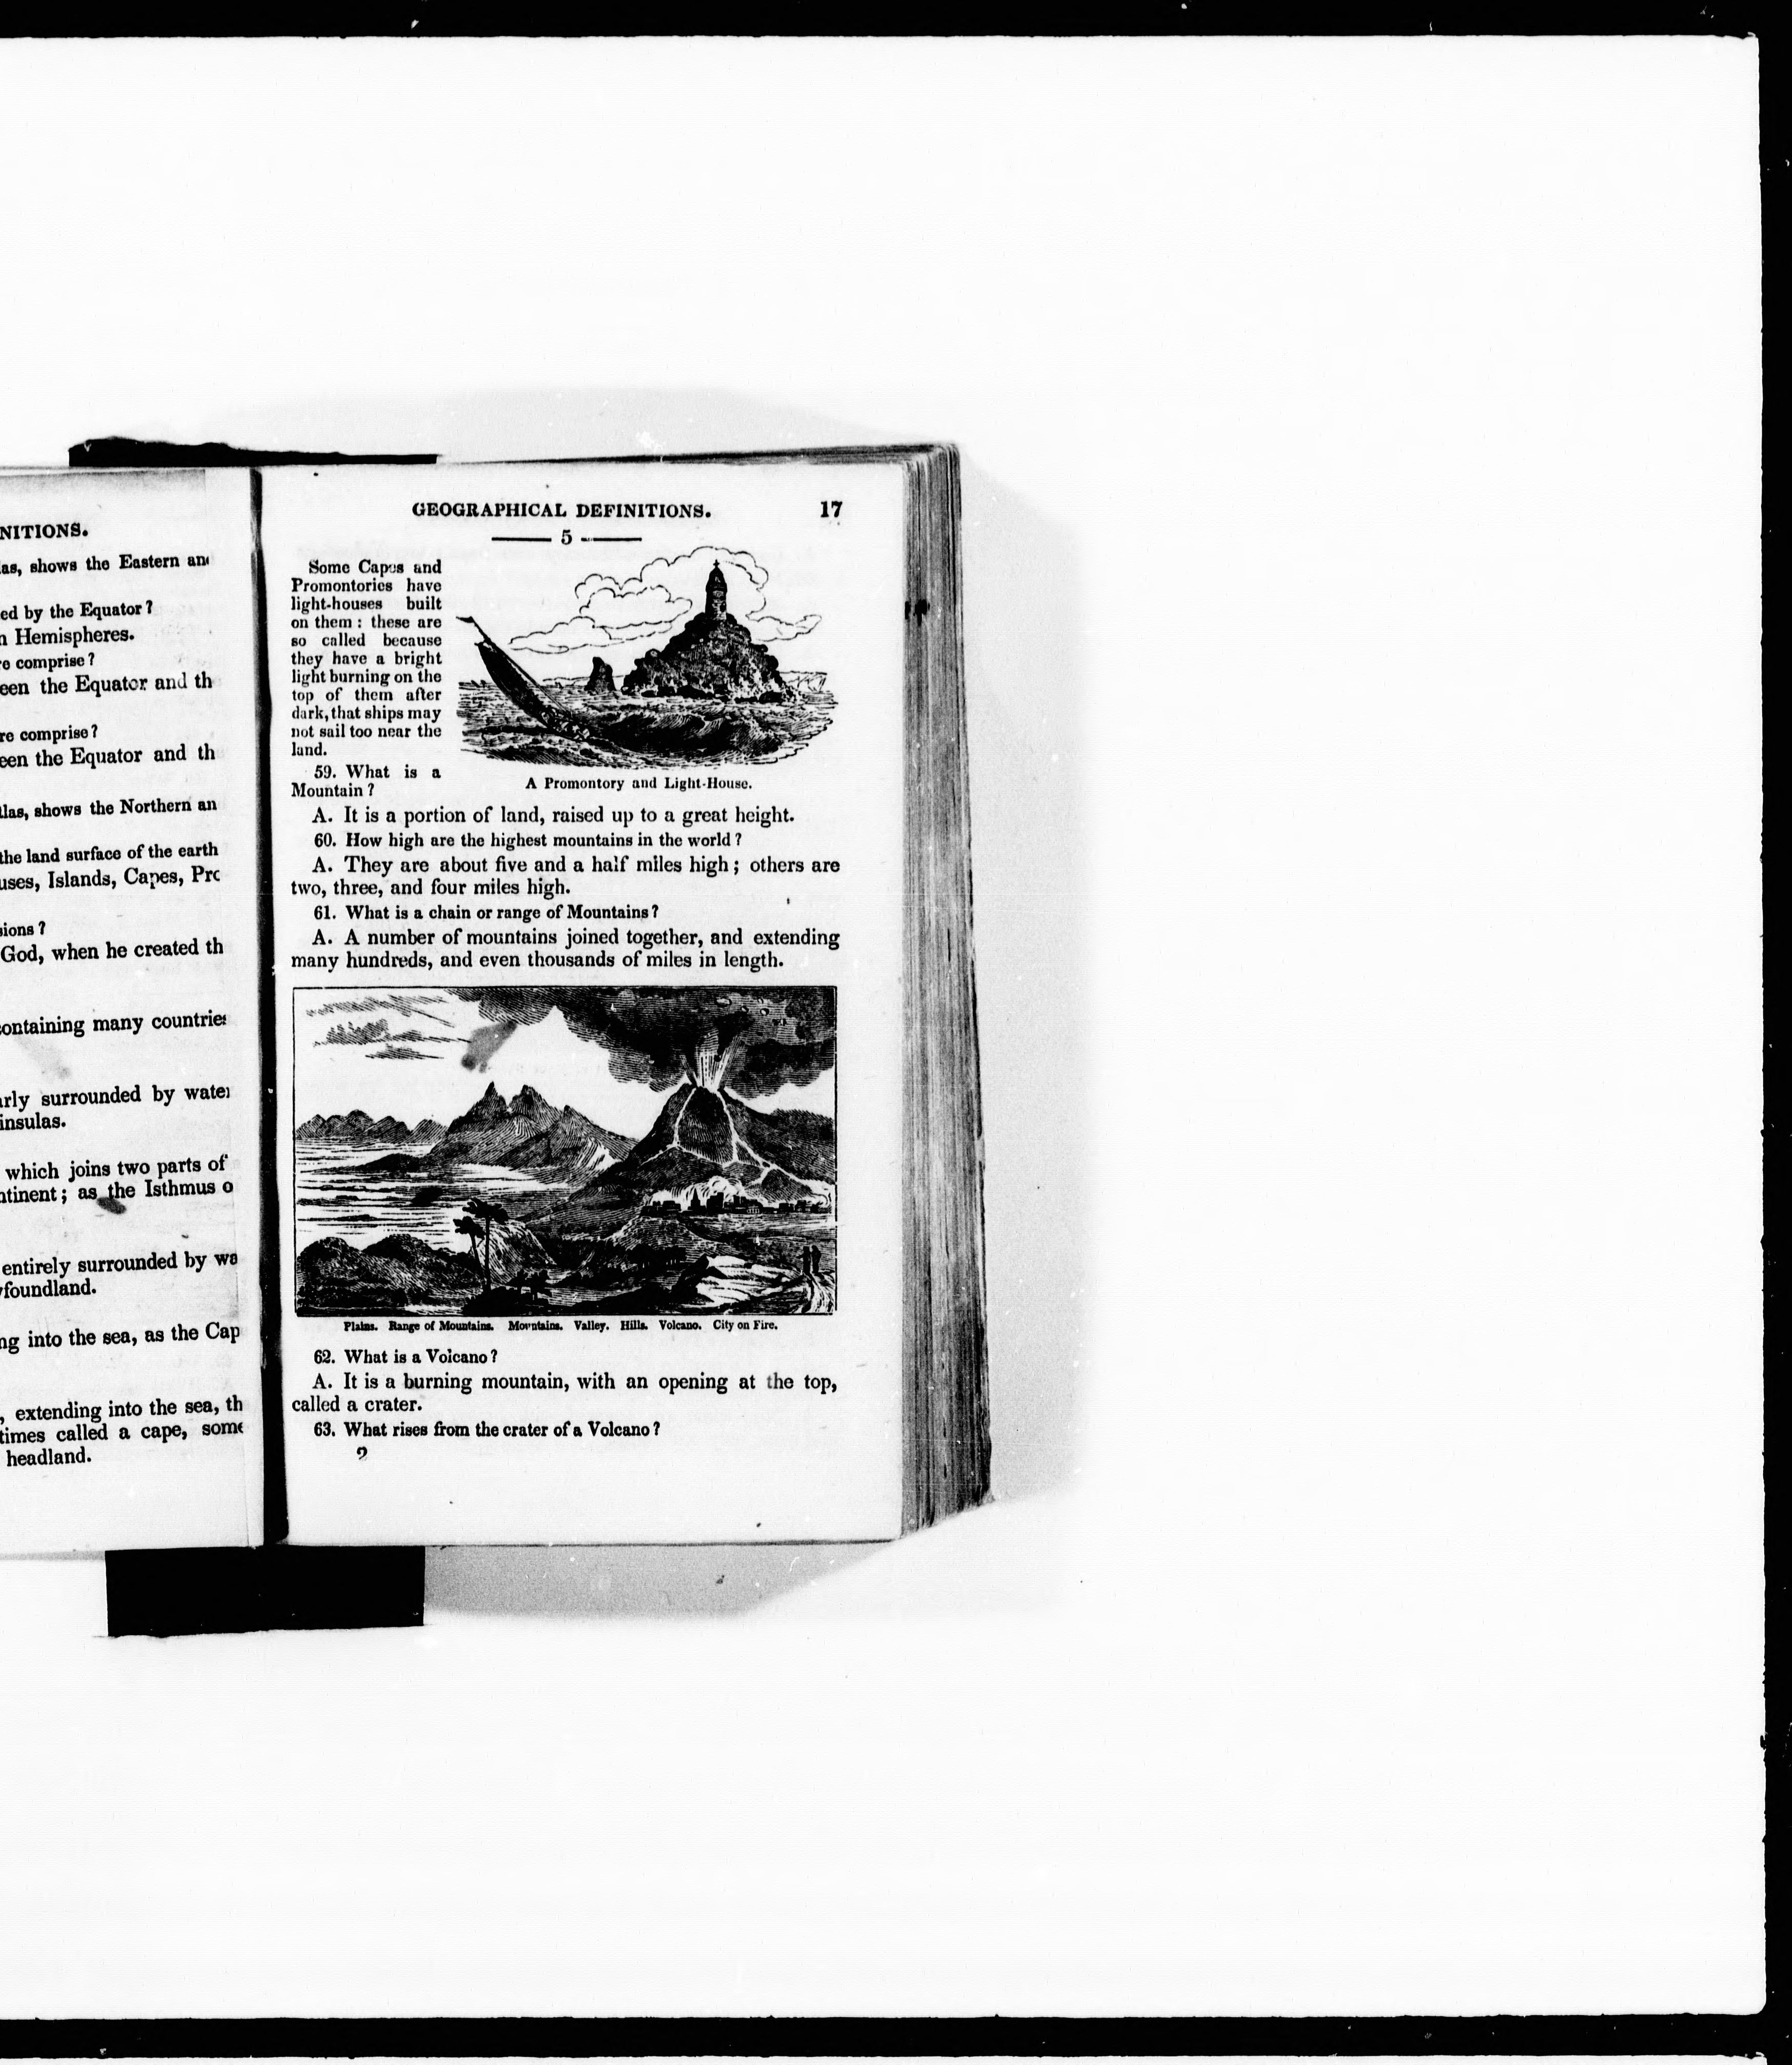 NITIONS.
as, shows the Eastern
ed by the Equator?
n Hemispheres.
e comprise?
een the Equator and th
re comprise?
een the Equator and th
las, shows the Northern an
the land surface of the earth
uses, Islands, Capes,
sions?
God, when he created th
containing many countries
rly surrounded by water
insulas.
which joins two parts of
tinent; as the Isthmus o
entirely surrounded by
foundland.
ng into the sea, as the Cap
, extending into the sea, th
times called a cape, some
headland.
GEOGRAPHICAL DEFINITIONS. 17
5
Some Capes and
Promontories have
light-houses built
on them: these are
so called because
they have a bright
light burning on the
top of them after
dark, that ships may
not sail too near the
land.
59. What is a
Mountain?
A Promontory and Light-House.
A. It is a portion of land, raised up to a great height.
60. How high are the highest mountains in the world?
A. They are about five and a half miles high; others are
two, three, and four miles high.
61. What is a chain or range of Mountains?
A. A number of mountains joined together, and extending
many hundreds, and even thousands of miles in length.
Plains. Range of Mountains. Mountains. Valley. Hills. Volcano. City on Fire.
62. What is a Volcano?
A. It is a burning mountain, with an opening at the top,
called a crater.
63. What rises from the crater of a Volcano?
2